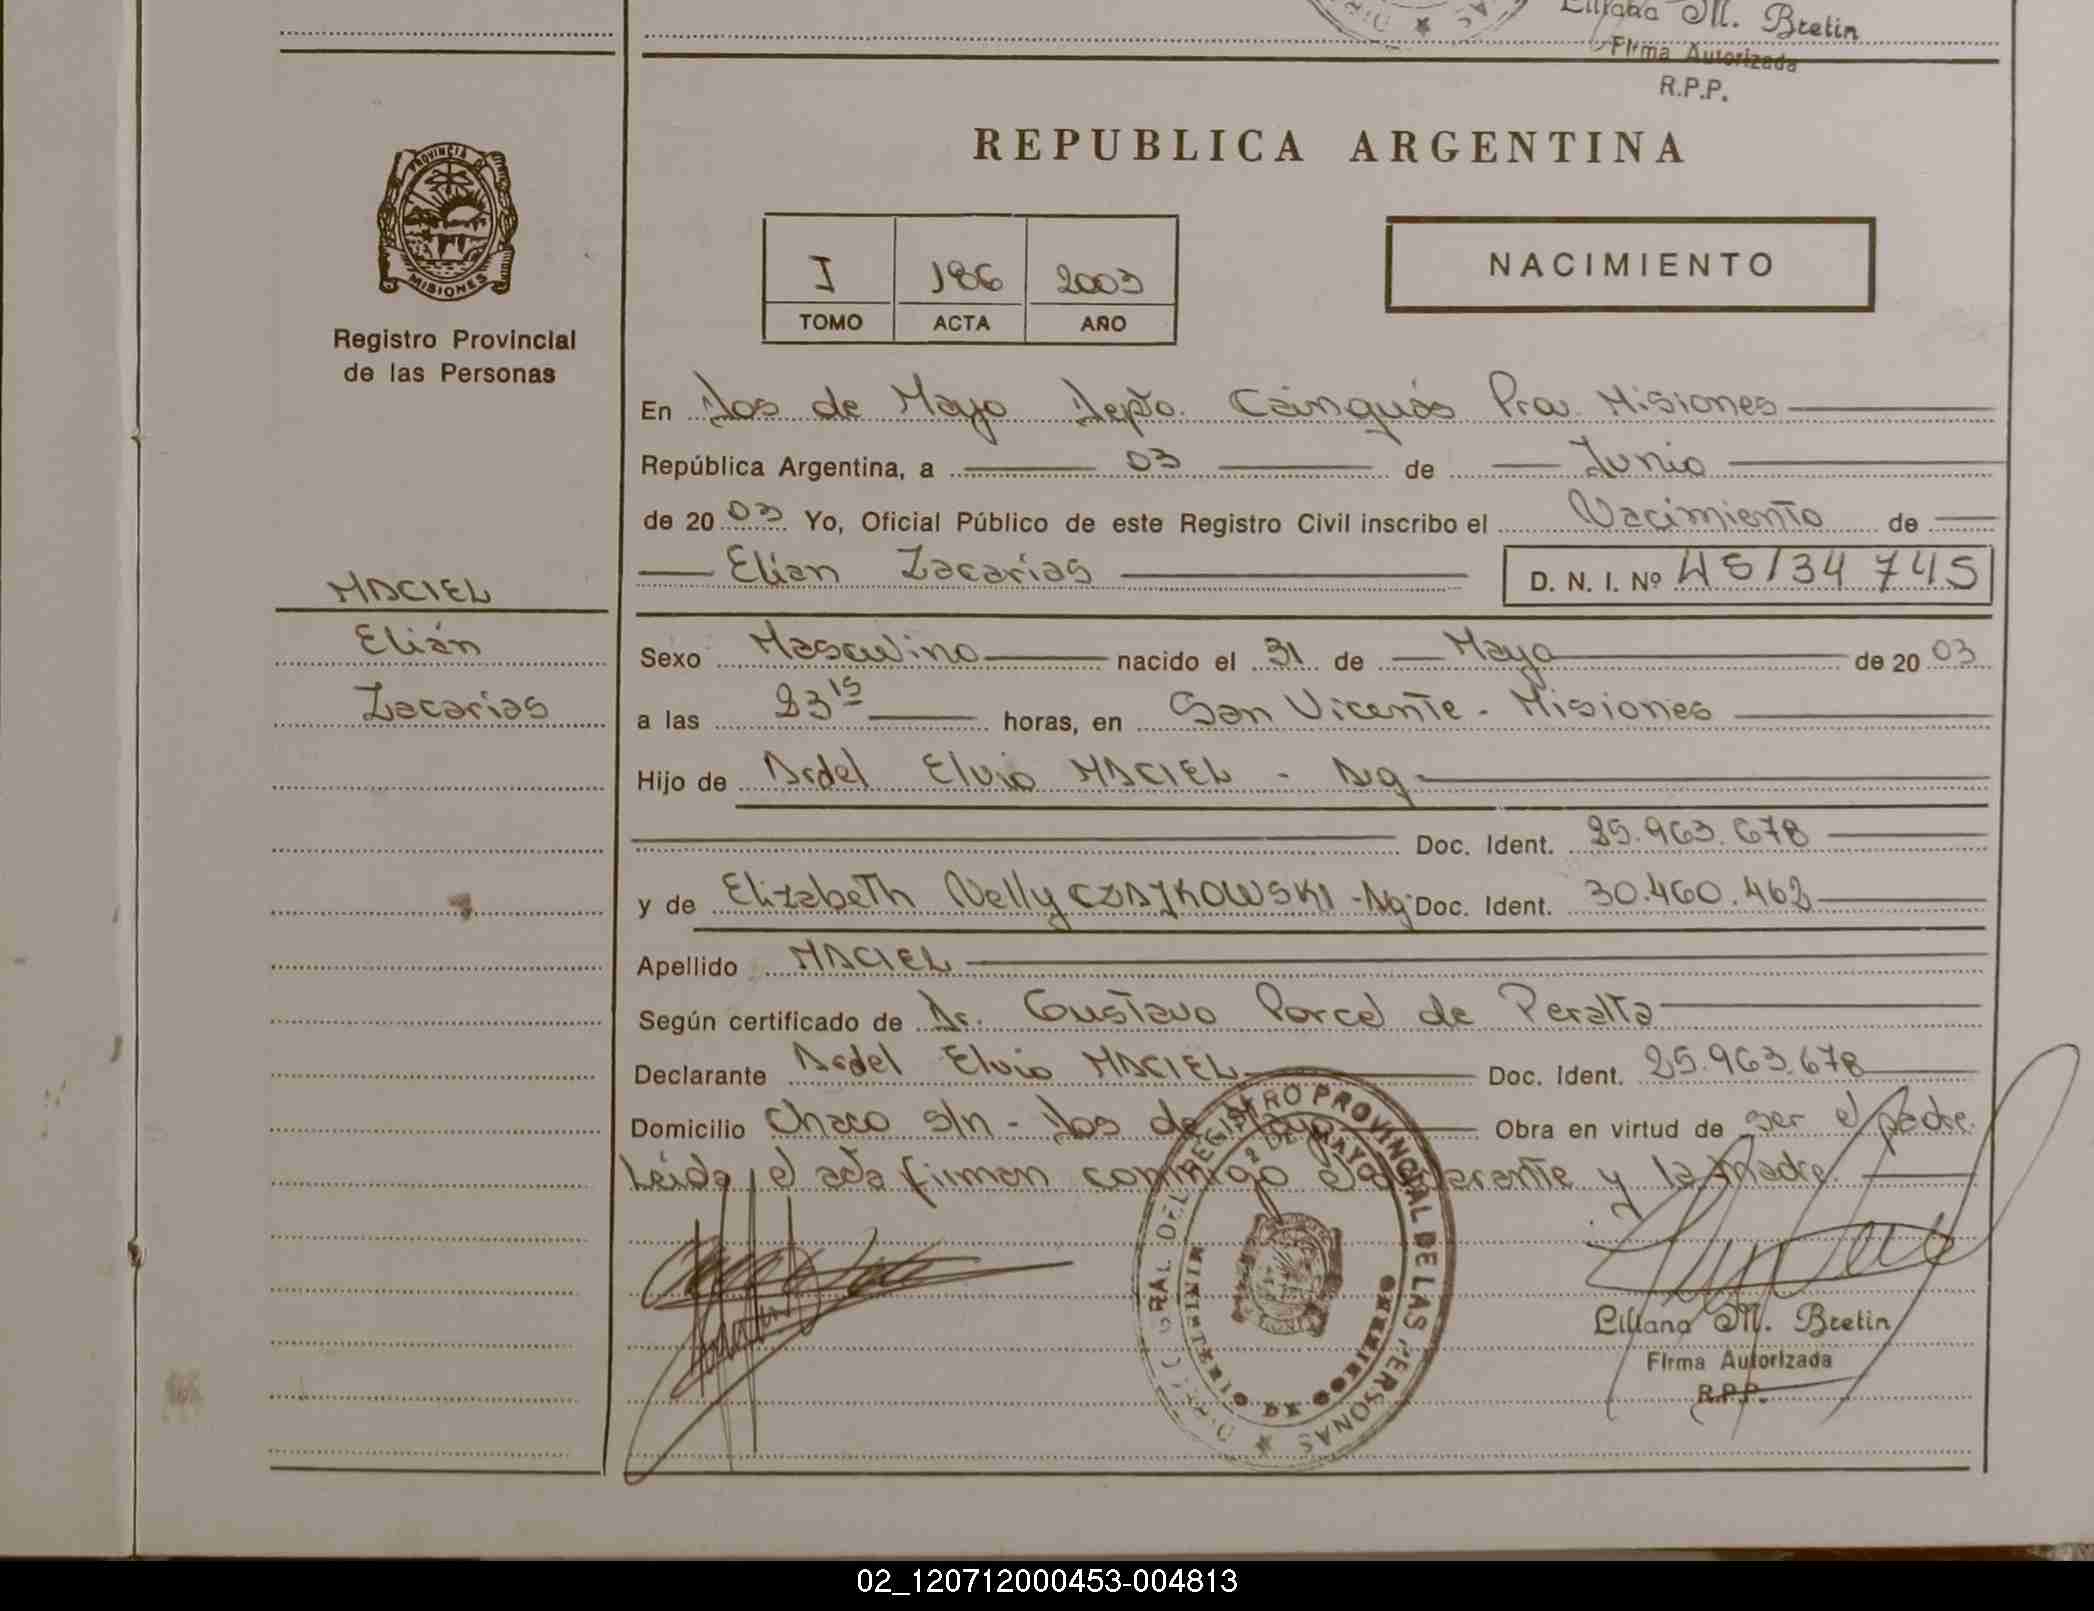 Liliana M. Bretin
Firma Autorizada
R.P.P.
PROVINCIA DE
MISIONES
Registro Provincial
de las Personas
REPUBLICA ARGENTINA
I 186 2003
TOMO ACTA AÑO
NACIMIENTO
En Dos de Mayo Depto. Cainguás Pcia. Misiones
República Argentina, a 03 de Junio
de 2003 Yo, Oficial Público de este Registro Civil inscribo el Nacimiento de
Elian Zacarias D. N. I. Nº 45134745
MACIEL
Elián
Zacarias
Sexo Masculino nacido el 31 de Mayo de 2003
a las 23 15 horas, en San Vicente - Misiones
Hijo de Ardel Elvio MACIEL - Arg
Doc. Ident. 25.963.678
y de Elizabeth Nelly CZAJKOWSKI - Arg Doc. Ident. 30.460.462
Apellido MACIEL
Según certificado de Dr. Gustavo Porcel de Peralta
Declarante Ardel Elvio MACIEL Doc. Ident. 25.963.678
Domicilio Chaco s/n - Dos de Mayo Obra en virtud de ser el padre.
Leída el acta firman conmigo el declarante y la madre.
DIRECC GRAL DEL REGISTRO PROVINCIAL DE LAS PERSONAS
2 DE MAYO
MINISTERIO DE GOBIERNO
Liliana M. Bretin
Firma Autorizada
R.P.P.
02_120712000453-004813